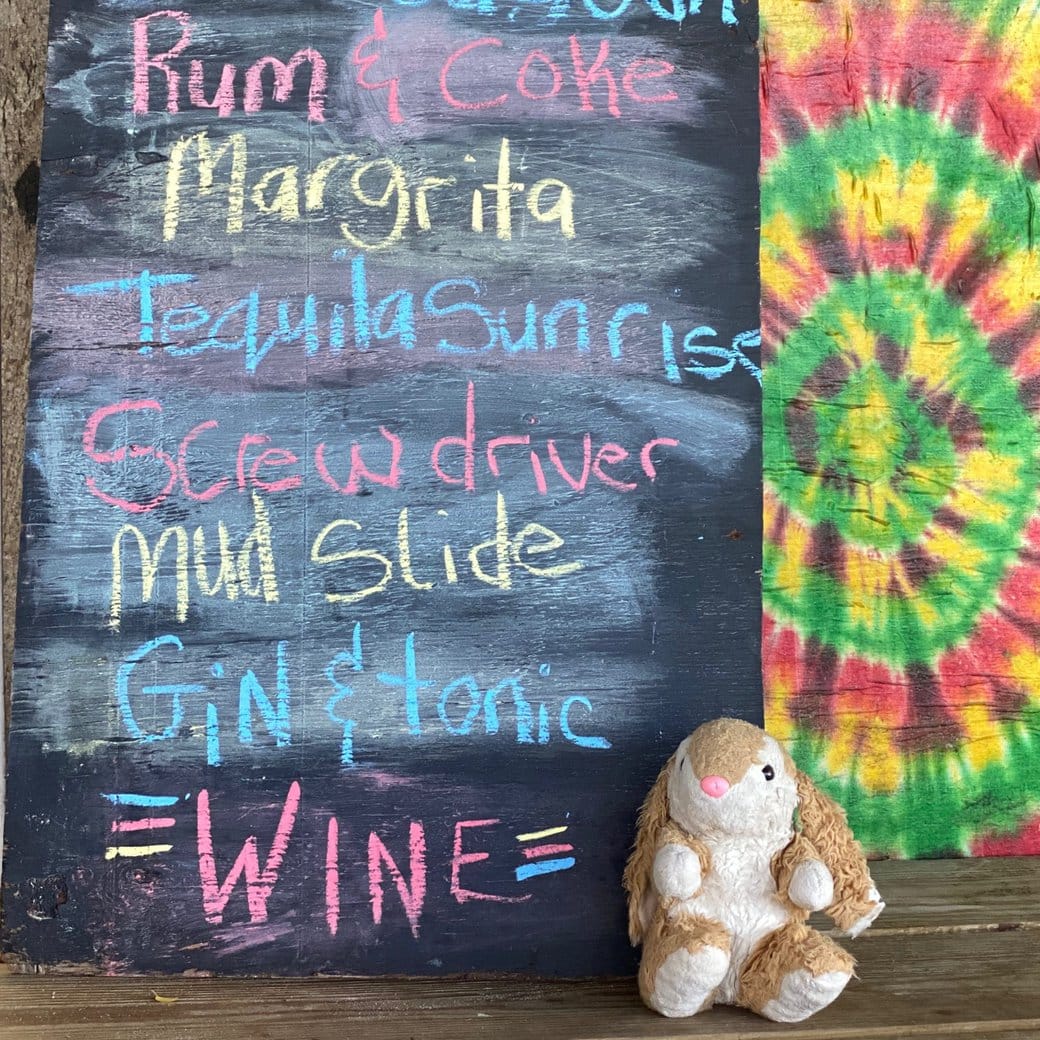 Rum & Coke
Margrita
Tequila Sunrise
Screwdriver
Mud Slide
GiN & tonic
WINE